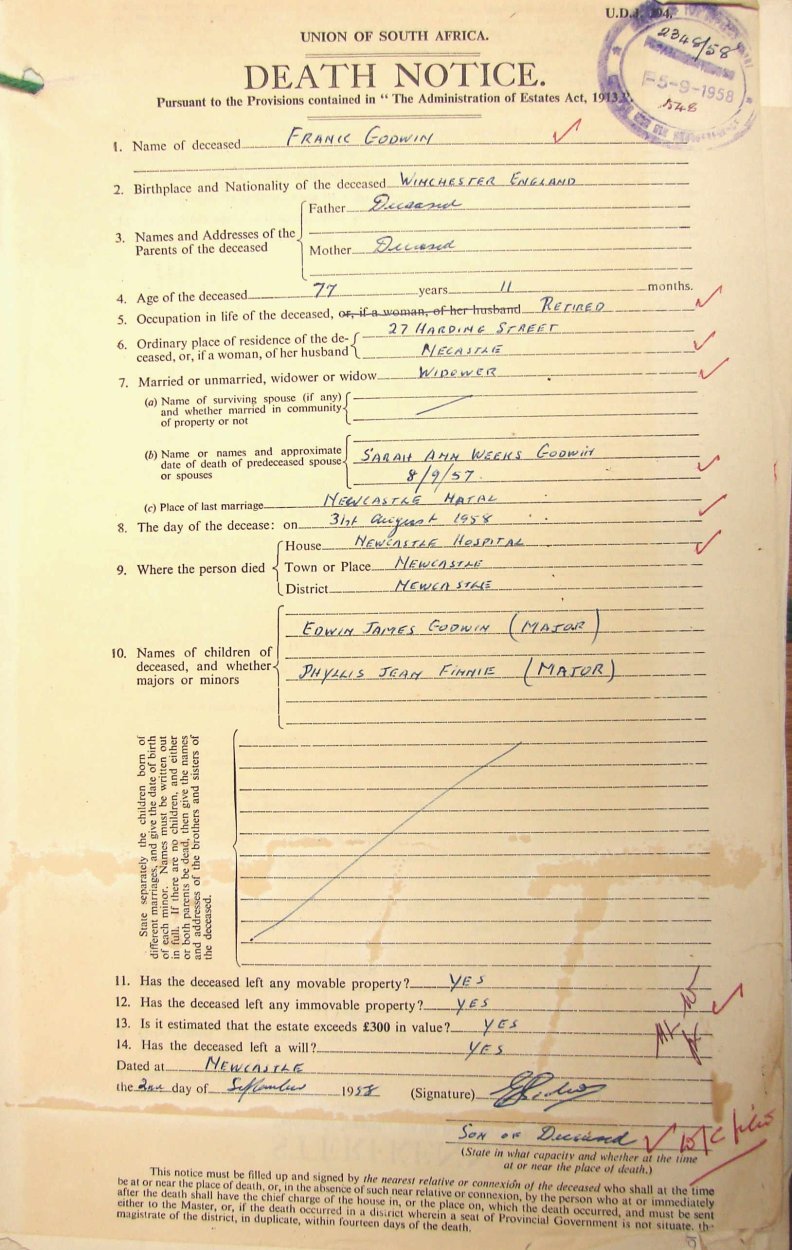 U.D.J.
2348/58
-5-9-1958
548
UNION OF SOUTH AFRICA.
DEATH NOTICE.
Pursuant to the Provisions contained in “ The Administration of Estates Act, 1913.”
1. Name of deceased FRANK GODWIN
2. Birthplace and Nationality of the deceased WINCHESTER ENGLAND
3. Names and Addresses of the Parents of the deceased
Father Deceased
Mother Deceased
4. Age of the deceased 77 years 11 months.
5. Occupation in life of the deceased, or, if a woman, of her husband RETIRED
6. Ordinary place of residence of the de-
ceased, or, if a woman, of her husband
27 HARDING STREET
NECASTLE
7. Married or unmarried, widower or widow WIDOWER
(a) Name of surviving spouse (if any)
and whether married in community
of property or not
(b) Name or names and approximate
date of death of predeceased spouse
or spouses
SARAH ANN WEEKS GODWIN
8/9/57.
(c) Place of last marriage NEWCASTLE NATAL
8. The day of the decease: on 31st August 1958
9. Where the person died
House NEWCASTLE HOSPITAL
Town or Place NEWCASTLE
District NEWCASTLE
10. Names of children of
deceased, and whether
majors or minors
EDWIN JAMES GODWIN (MAJOR)
PHYLLIS JEAN FINNIE (MAJOR)
State separately the children born of
different marriages, and give the date of birth
of each minor. Names must be written out
in full. If there are no children, and either
or both parents be dead, then give the names
and addresses of the brothers and sisters of
the deceased.
11. Has the deceased left any movable property? YES
12. Has the deceased left any immovable property? YES
13. Is it estimated that the estate exceeds £300 in value? YES
14. Has the deceased left a will? YES
Dated at NEWCASTLE
the 2nd day of September 1958 (Signature)
SON OF Deceased
(State in what capacity and whether at the time
at or near the place of death.)
This notice must be filled up and signed by the nearest relative or connexion of the deceased who shall at the time
be at or near the place of death, or, in the absence of such near relative or connexion, by the person who at or immediately
after the death shall have the chief charge of the house in, or the place on, which the death occurred, and must be sent
either to the Master, or, if the death occurred in a district wherein a seat of Provincial Government is not situate, th-
magistrate of the district, in duplicate, within fourteen days of the death.